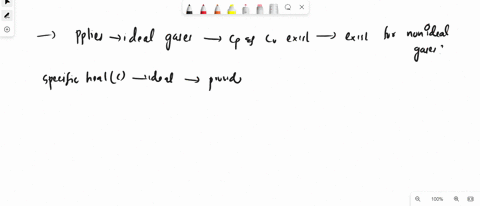 → Applies → ideal gases → Cp & Cv exist → exist for nonideal
gases.
specific heat (c) → ideal → provid
100%